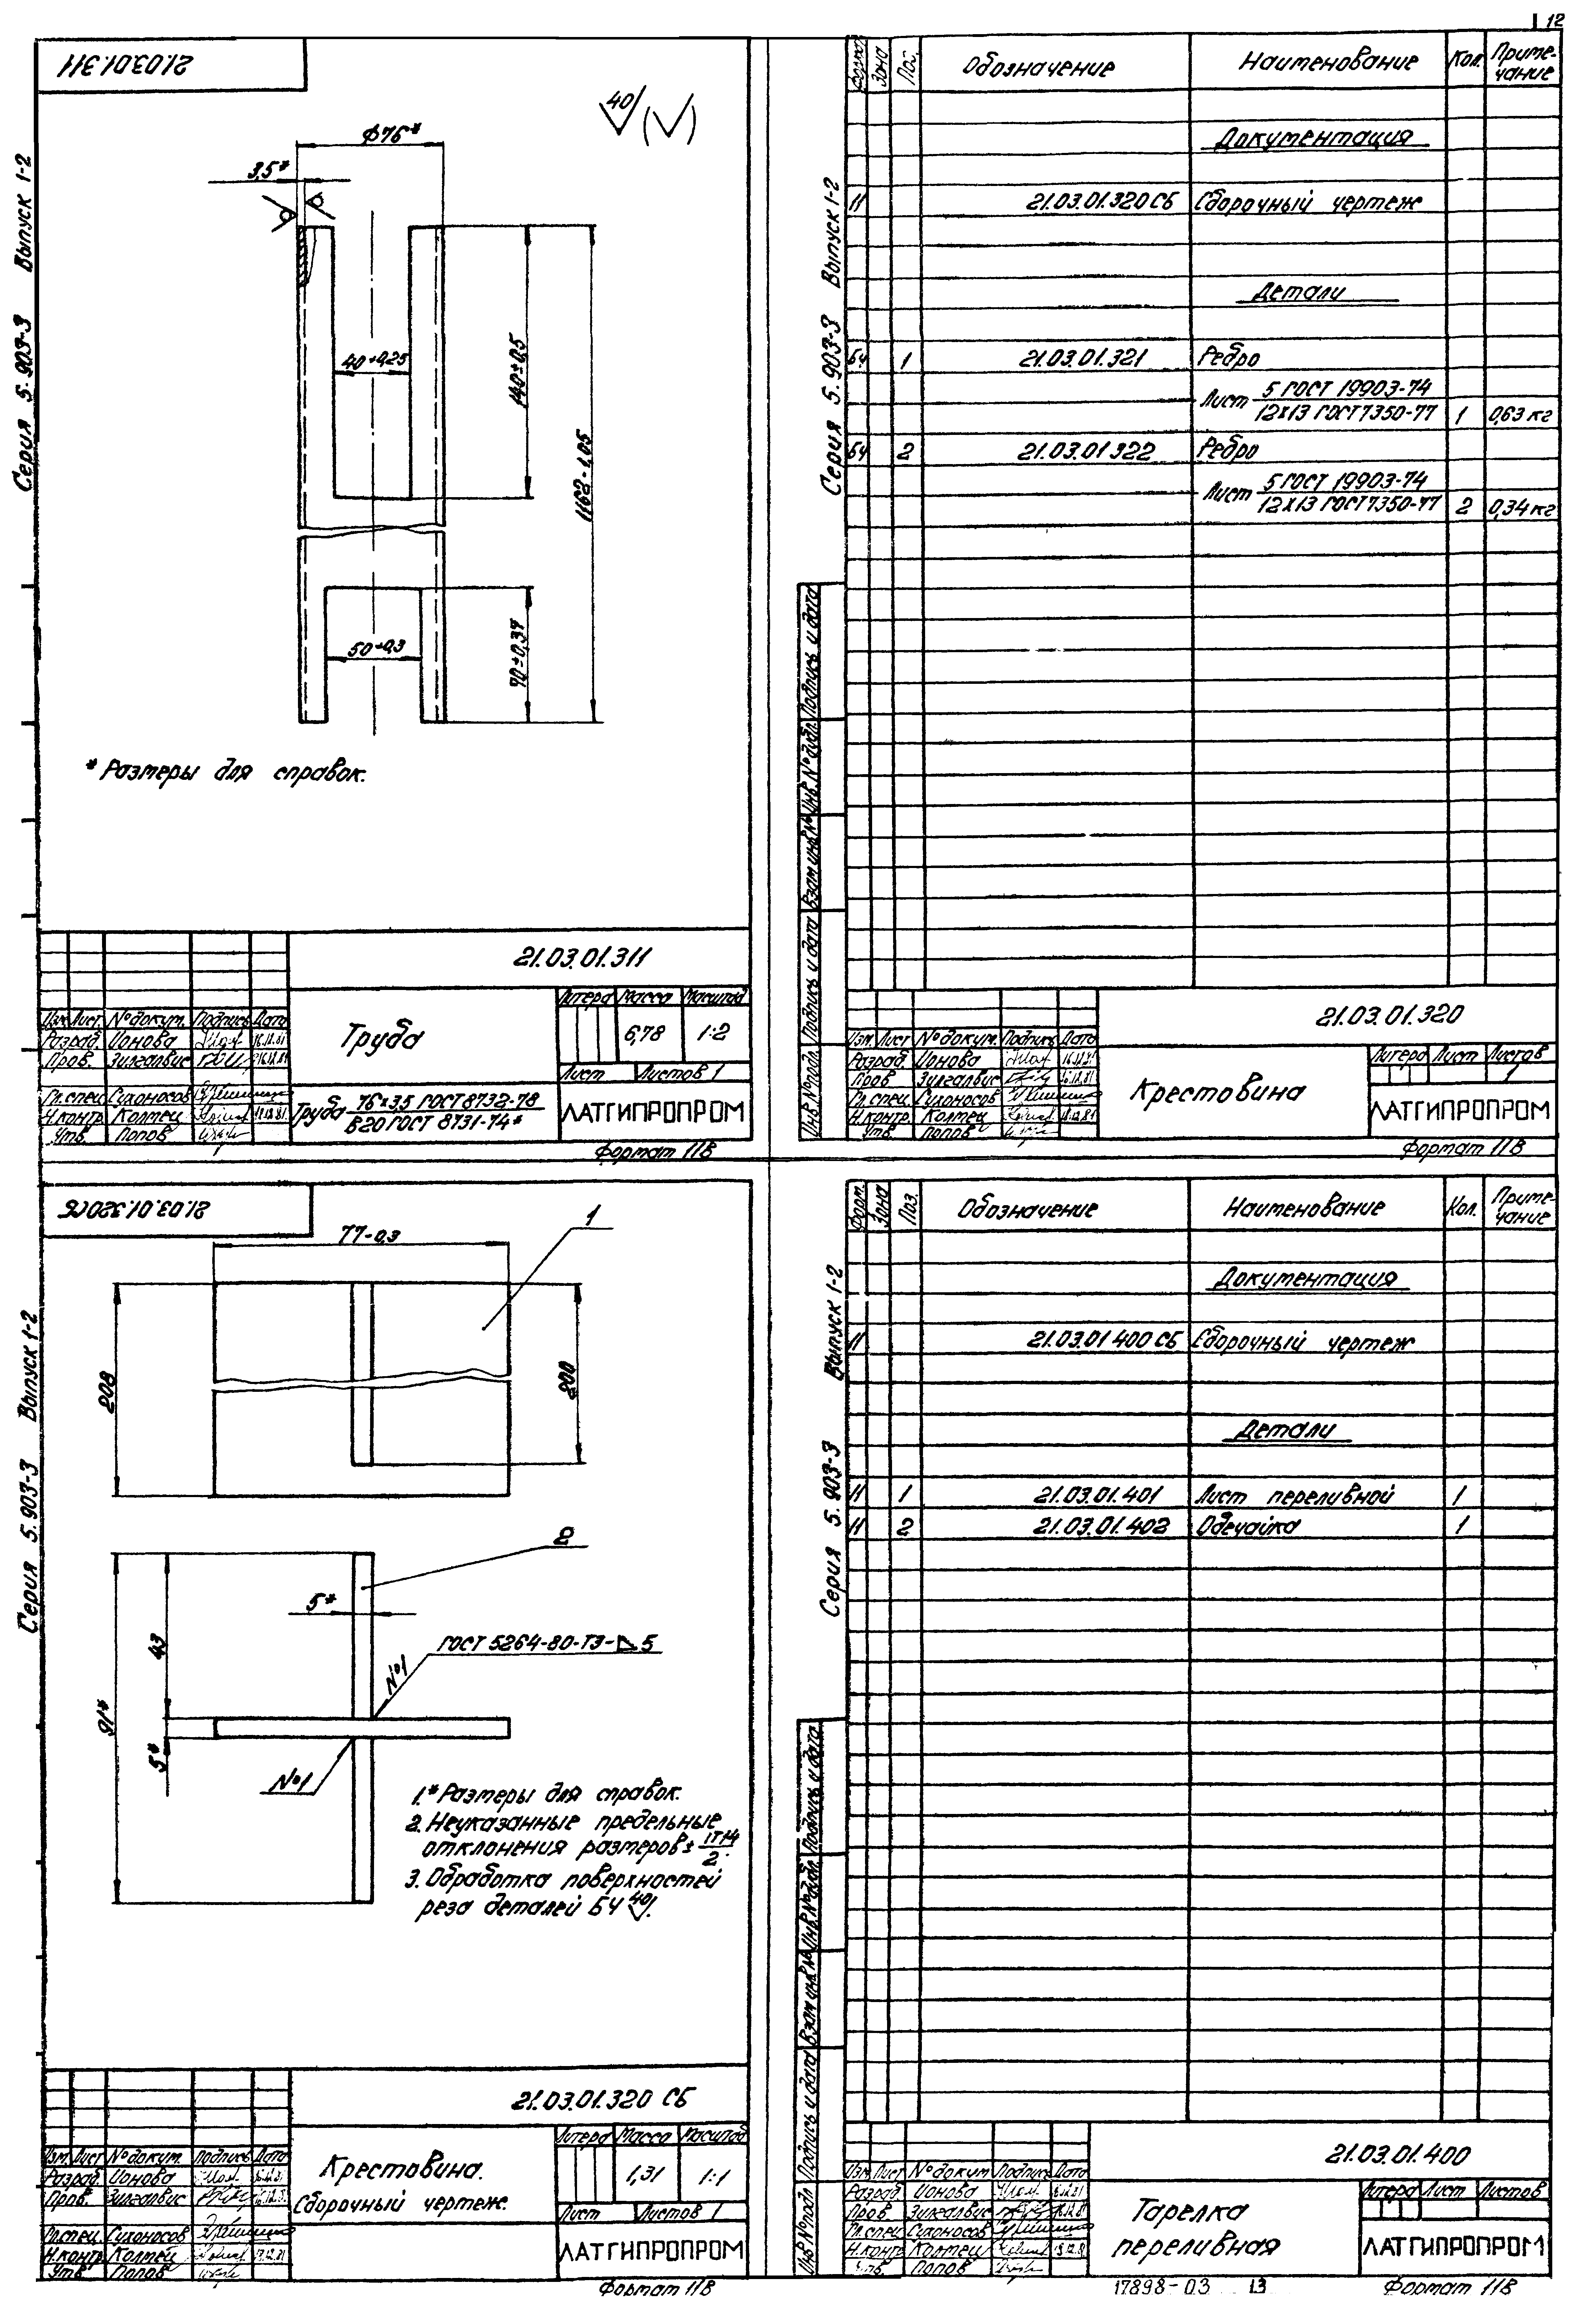 12
21.03.01.311
Серия 5.903-3 Выпуск 1-2
40 (√)
ф76*
3,5*
40+0,25
140±0,5
1162-1,05
50+0,3
70±0,37
* Размеры для справок.
21.03.01.311
Изм. Лист № докум. Подпись Дата
Разраб. Ионова
Пров. Зилгалвис
Гл.спец. Сухоносов
Н.контр. Колтец
Утв. Попов
Труба
Литера Масса Масштаб
6,78 1:2
Лист Листов 1
Труба 76×3,5 ГОСТ 8732-78
В20 ГОСТ 8731-74*
ЛАТГИПРОПРОМ
Формат 11В
Серия 5.903-3 Выпуск 1-2
Форм. Зона Поз. Обозначение Наименование Кол. Приме-
чание
Документация
11 21.03.01.320 СБ Сборочный чертеж
Детали
БЧ 1 21.03.01.321 Ребро
Лист 5 ГОСТ 19903-74
12Х13 ГОСТ 7350-77 1 0,63 кг
БЧ 2 21.03.01.322 Ребро
Лист 5 ГОСТ 19903-74
12Х13 ГОСТ 7350-77 2 0,34 кг
Инв. № подл. Подпись и дата Взам. инв. № Инв. № дубл. Подпись и дата
21.03.01.320
Изм. Лист № докум. Подпись Дата
Разраб. Ионова
Пров. Зилгалвис
Гл.спец. Сухоносов
Н.контр. Колтец
Утв. Попов
Крестовина
Литера Лист Листов
1
ЛАТГИПРОПРОМ
Формат 11В
21.03.01.320СБ
Серия 5.903-3 Выпуск 1-2
77-0,3
1
208
200
2
5*
43
91*
5*
ГОСТ 5264-80-Т3-◺5
№1
№1
1.* Размеры для справок.
2. Неуказанные предельные
отклонения размеров ± IT14/2.
3. Обработка поверхностей
реза деталей БЧ 40.
21.03.01.320 СБ
Изм. Лист № докум. Подпись Дата
Разраб. Ионова
Пров. Зилгалвис
Гл.спец. Сухоносов
Н.контр. Колтец
Утв. Попов
Крестовина.
Сборочный чертеж.
Литера Масса Масштаб
1,31 1:1
Лист Листов 1
ЛАТГИПРОПРОМ
Формат 11В
Серия 5.903-3 Выпуск 1-2
Форм. Зона Поз. Обозначение Наименование Кол. Приме-
чание
Документация
11 21.03.01.400 СБ Сборочный чертеж
Детали
11 1 21.03.01.401 Лист переливной 1
11 2 21.03.01.402 Обечайка 1
Инв. № подл. Подпись и дата Взам. инв. № Инв. № дубл. Подпись и дата
21.03.01.400
Изм. Лист № докум. Подпись Дата
Разраб. Ионова
Пров. Зилгалвис
Гл.спец. Сухоносов
Н.контр. Колтец
Утв. Попов
Тарелка
переливная
Литера Лист Листов
ЛАТГИПРОПРОМ
17898-03 13
Формат 11В